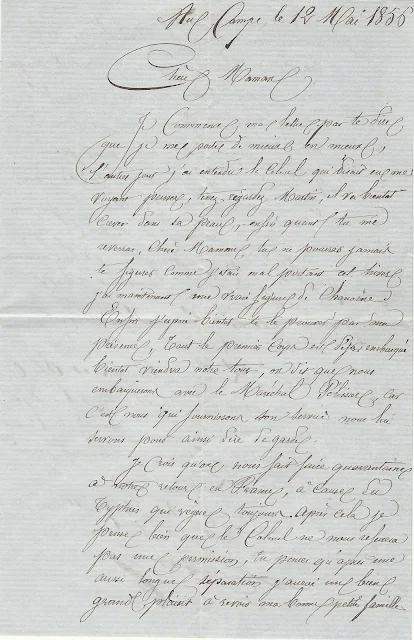 Au Camp le 12 Mai 1856
Chère Maman
Je Commence ma lettre par te dire
que je me porte de mieux en mieux,
l'autre jour j'ai entendu le Colonel qui disait en me
voyant passer, tenez regardez Martin, il va bientot
crever dans sa peau, enfin quand tu me
reverras, Chère Maman, tu ne pourras jamais
te figurer comme j'étais mal portant cet hiver
j'ai maintenant une vraie figure de Chanoine
Enfin j'espère bientot te le prouver par ma
présence, tout le premier Corps est déjà embarqué
bientot viendra notre tour, on dit que nous
embarquerons avec le Maréchal Pélissier, car
c'est nous qui fournissons son service nous lui
servons pour ainsi dire de garde.
Je crois qu'on nous fait faire quarantaine
à notre retour en France, à cause du
Typhus qui règne toujours. Après cela je
pense bien que le Colonel ne nous refusera
pas une permission, tu penses qu'après une
aussi longue séparation j'aurai un bien
grand plaisir à revoir ma bonne petite famille